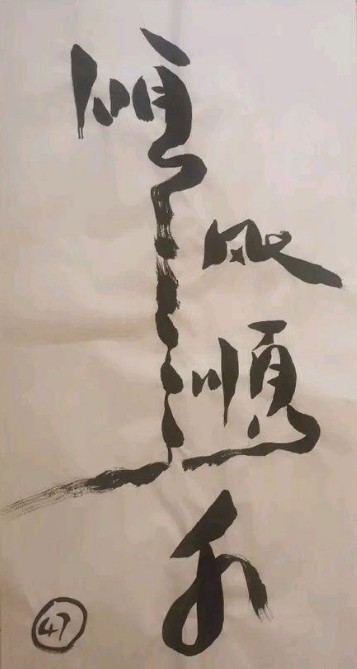 順
風
順
水
47